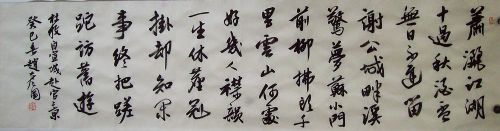 蕭灑江湖
十過秋酒杯
無日不遲留
謝公城畔溪
驚夢蘇小門
前柳拂頭千
里雲山何處
好幾人襟韻
一生休塵冠
掛卻知閑
事終把蹉
跎訪舊遊
杜牧自宣城赴官上京
癸巳春趙彥國